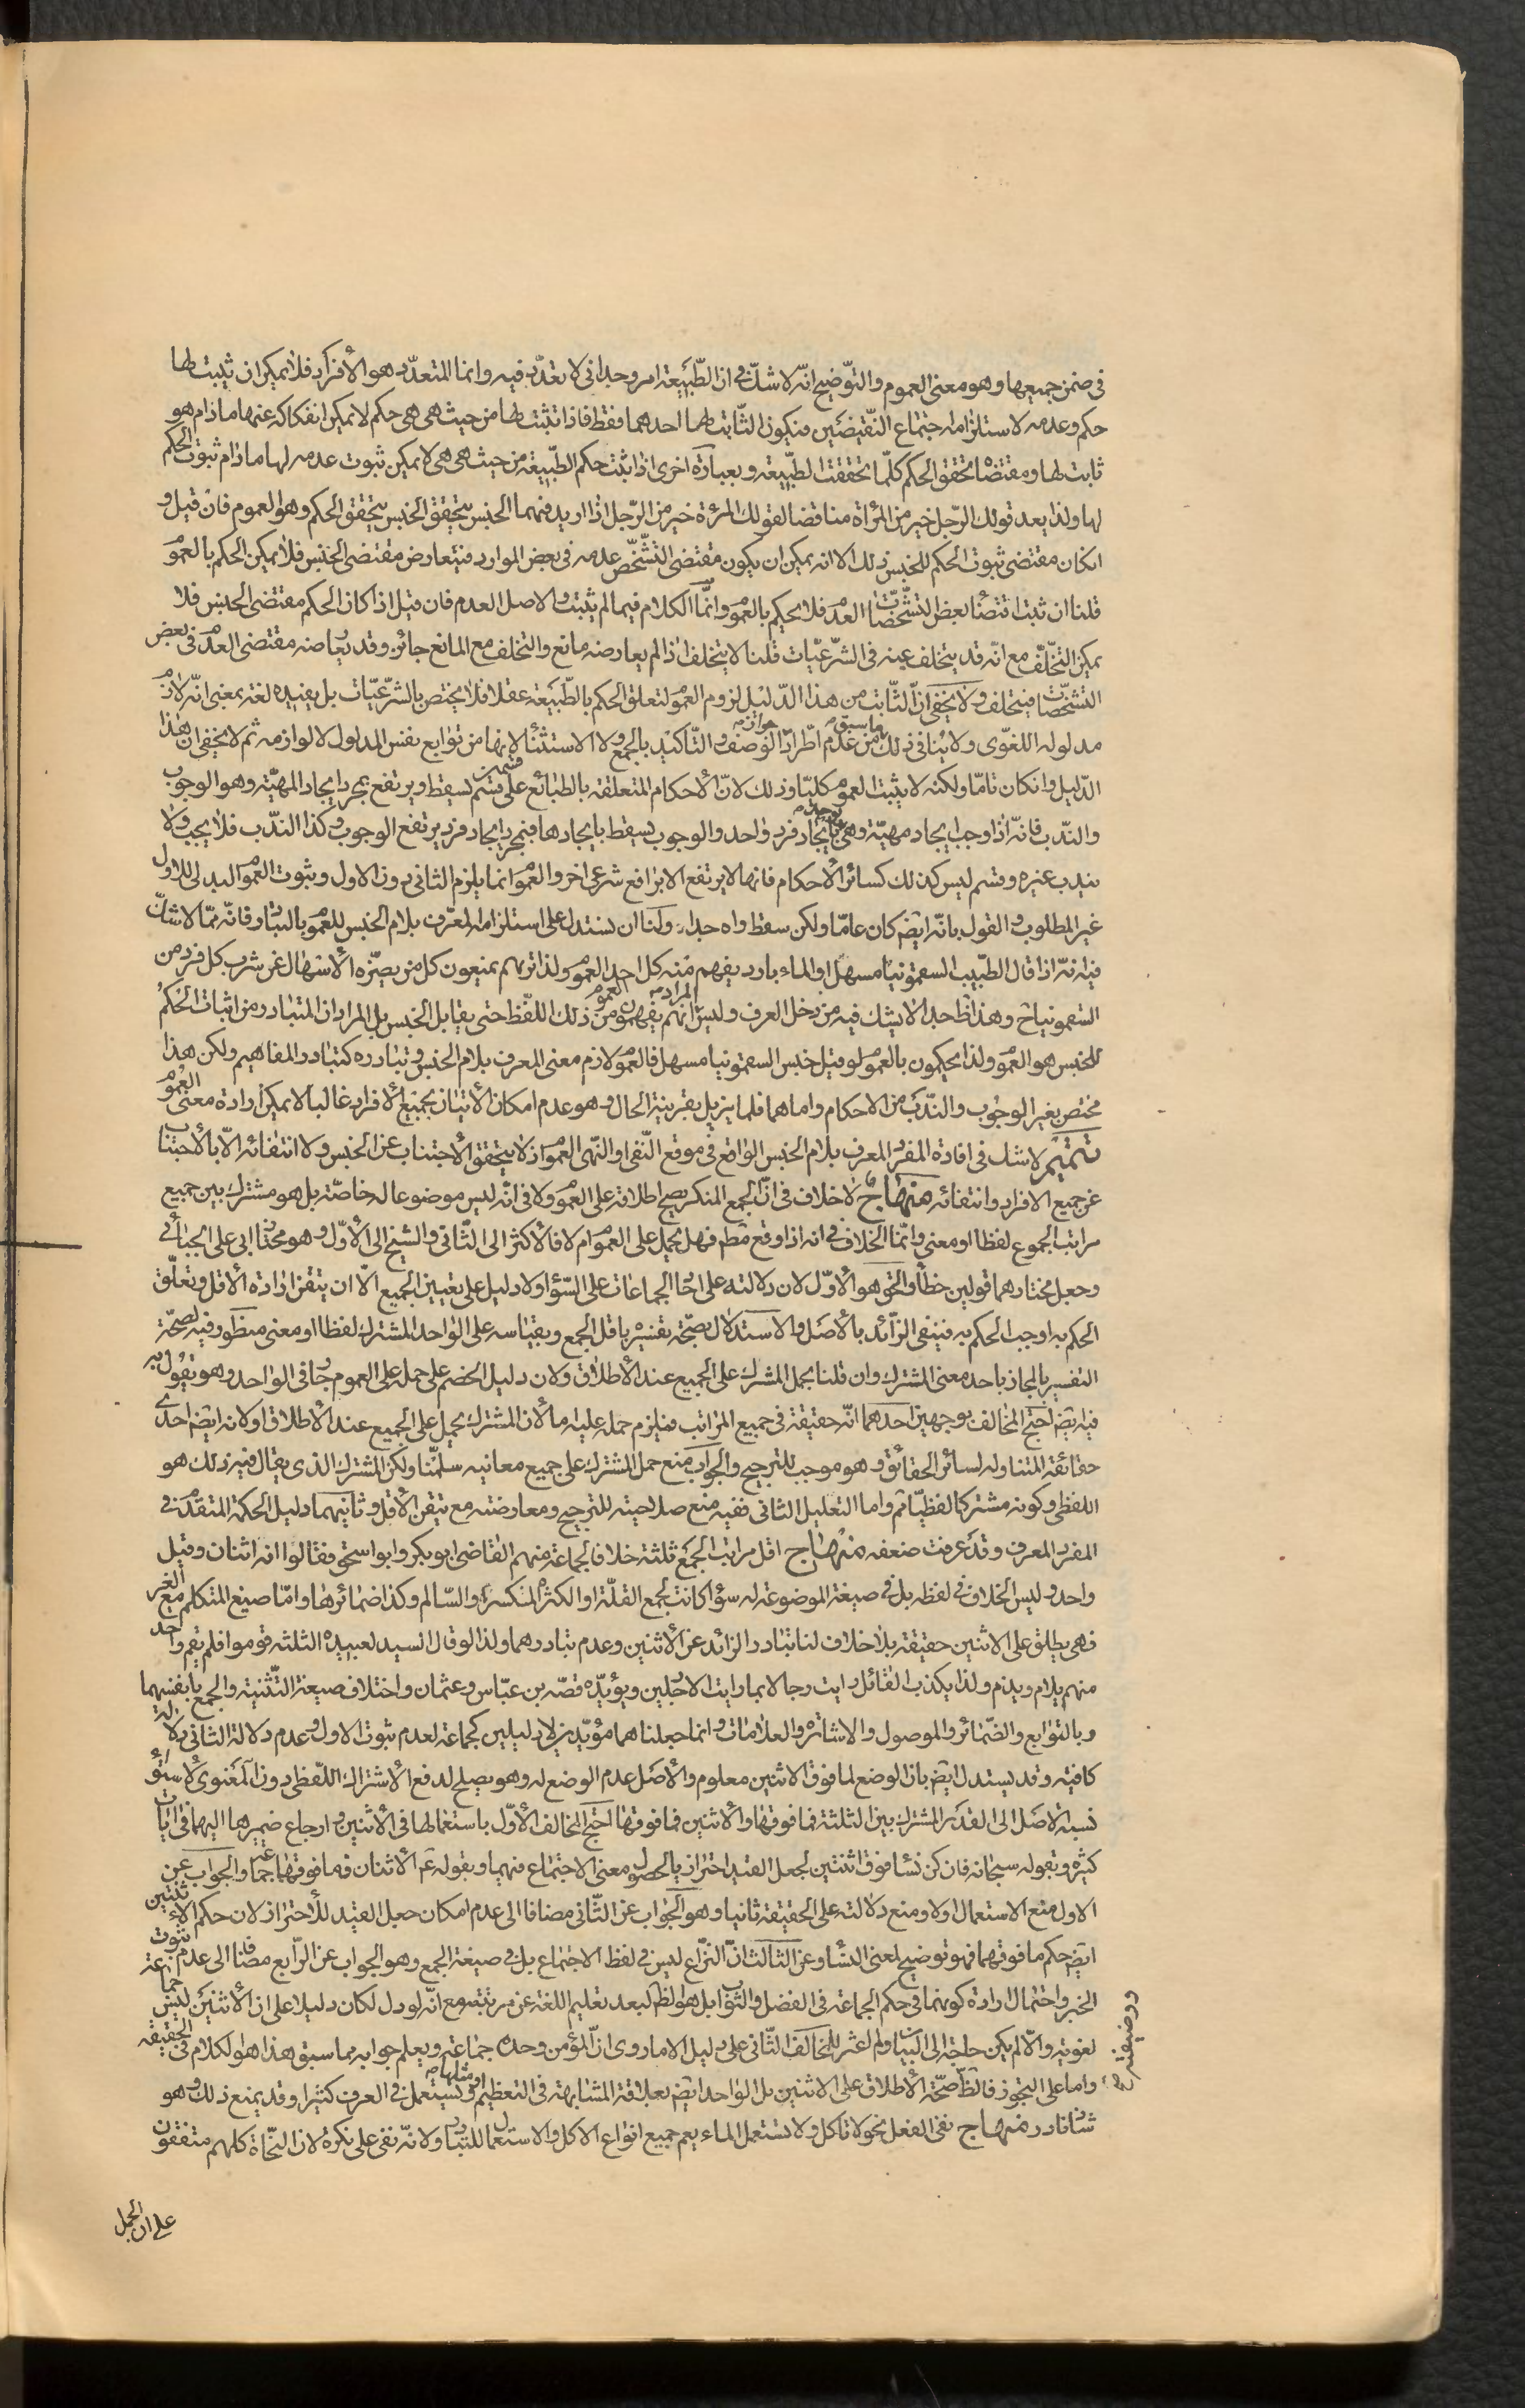 في ضمن جميعها وهو معنى العموم والتوضيح انه لا شك في ان الطبيعة امر وحداني لا تعدد فيه وانما المتعدد هو الأفراد فلا يمكن ان يثبت لها
حكم وعدمه لاستلزامه اجتماع النقيضين فيكون الثابت لها احدهما فقط فاذا تثبت لها من حيث هي هي حكم لا يمكن انفكاكه عنها ما دام هو
ثابت لها ومقتضاه تحقق الحكم كلما تحققت الطبيعة وبعبارة اخرى اذا ثبت حكم الطبيعة من حيث هي هي لا يمكن ثبوت عدمه لها ما دام ثبوت الحكم
لها ولذا يعد قولك الرجل خير من المرأة مناقضا لقولك المرئة خير من الرجل اذا اريد منهما الجنس بتحقق الجنس يتحقق الحكم وهو العموم فان قيل و
ان كان مقتضى ثبوت الحكم للجنس ذلك الا انه يمكن ان يكون مقتضى التشخص عدمه في بعض الموارد فيتعارض مقتضى الجنس فلا يمكن الحكم بالعموم
قلنا ان ثبت اقتضاء بعض التشخصات العدم فلا يحكم بالعموم وانما الكلام فيما لم يثبت والاصل العدم فان قيل اذا كان الحكم مقتضى الجنس فلا
يمكن التخلف مع انه قد يتخلف عنه في الشرعيات قلنا لا يتخلف اذا لم يعارضه مانع والتخلف مع المانع جائز وقد يعارضه مقتضى العدم في بعض
التشخصات فيتخلف ولا يخفى ان الثابت من هذا الدليل لزوم العموم لتعلق الحكم بالطبيعة عقلا فلا يختص بالشرعيات بل يفيده لغة بمعنى انه لازم
مدلوله اللغوي ولا ينافي ذلك ما سبق من عدم اطراد جواز الوصف والتاكيد بالجمع ولا الاستثناء لانها من توابع نفس المدلول لا لوازمه ثم لا يخفى ان هذا
الدليل وان كان تاما ولكنه لا يثبت العموم كليا وذلك لان الأحكام المتعلقة بالطبائع على قسمين قسم يسقط ويرتفع بمجرد ايجاد المهية وهو الوجوب
والندب فانه اذا وجب ايجاد مهية وهي توجد بايجاد فرد واحد والوجوب يسقط بايجادها فبمجرد ايجاد فرد يرتفع الوجوب وكذا الندب فلا يجب ولا
يندب غيره وقسم ليس كذلك كسائر الأحكام فانها لا يرتفع الا برافع شرعي اخر والعموم انما يلزم الثاني دون الاول وثبوت العموم البدلي للاول
غير المطلوب والقول بانه ايضا كان عاما ولكن سقط واه جدا ولنا ان نستدل على استلزام المعرف بلام الجنس للعموم بالتبادر فانه مما لا شك
فيه انه اذا قال الطبيب السقمونيا مسهل او الماء بارد يفهم منه كل احد العموم ولذا تريهم يمنعون كل من يضره الأسهال عن شرب كل فرد من
السقمونيا وهذا ظ جدا لا يشك فيه من دخل العرف وليس المراد انهم يفهمون العموم من ذلك اللفظ حتى يقابل الجنس بل المراد ان المتبادر من اثبات الحكم
للجنس هو العموم ولذا يحكمون بالعموم لو قيل جنس السقمونيا مسهل فالعموم لازم معنى المعرف بلام الجنس وتبادره كتبادر المفاهيم ولكن هذا
مختص بغير الوجوب والندب من الاحكام واما هما فلما يزيل بقرينة الحال وهو عدم امكان الأتيان بجميع الأفراد غالبا لا يمكن ارادة معنى العموم
تتميم لا شك في افادة المفرد المعرف بلام الجنس الواقع في موقع النفي او النهي العموم اذ لا يتحقق الأجتناب عن الجنس ولا انتفائه الا بالأجتناب
عن جميع الافراد وانتفائه منهاج لا خلاف في ان الجمع المنكر يصح اطلاقه على العموم ولا في انه ليس موضوعا له خاصة بل هو مشترك بين جميع
مراتب الجموع لفظا او معنى وانما الخلاف في انه اذا وقع مطم فهل يحمل على العموم ام لا فالأكثر الى الثاني والشيخ الى الأول وهو مختار ابي على الجبائي
وجعل مختارهما قولين خطأ والحق هو الأول لان دلالته على احاد الجماعات على السواء ولا دليل على تعيين الجميع الا ان يتقن ارادة الأقل وتعلق
الحكم به اوجب الحكم به فينفي الزائد بالأصل والاستدلال بصحة تفسيره باقل الجمع وبقياسه على الواحد المشترك لفظا او معنى منظور فيه لصحة
التفسير بالمجاز باحد معنى المشترك وان قلنا بحمل المشترك على الجميع عند الأطلاق ولان دليل الخصم على حمله على العموم جار في الواحد وهو يقول به
فيه ايضا احتج المخالف بوجهين احدهما انه حقيقة في جميع المراتب فيلزم حمله عليه اما لأن المشترك يحمل على الجميع عند الأطلاق او لانه ايضا احدى
حقائقه المتناوله لسائر الحقائق وهو موجب للترجيح والجواب منع حمل المشترك على جميع معانيه سلمنا ولكن المشترك الذي يقال فيه ذلك هو
اللفظي وكونه مشتركا لفظيا ثم واما التعليل الثاني ففيه منع صلاحيته للترجيح ومعارضته مع تيقن الأقل وثانيهما دليل الحكمة المتقدمة في
المفرد المعرف وقد عرفت ضعفه منهاج اقل مراتب الجمع ثلثة خلافا لجماعة منهم القاضي ابو بكر وابو اسحق فقالوا انه اثنان وقيل
واحد وليس الخلاف في لفظه بل في صيغة الموضوعة له سواء كانت لجمع القلة او الكثرة المنكسر او السالم وكذا ضمائرها واما صيغ المتكلم مع الغير
فهي يطلق على الاثنين حقيقة بلا خلاف لنا تبادر الزائد عن الأثنين وعدم تبادرهما ولذا لو قال السيد لعبيده الثلثة قوموا فلم يقم واحد
منهم يلام ويذم ولذا يكذب القائل رايت رجالا انما رايت الا رجلين ويؤيده قصة بن عباس وعثمان واختلاف صيغة التثنية والجمع بانفسهما
وبالتوابع والضمائر والموصول والاشارة والعلامات وانما جعلناهما مؤيدين لا دليلين كجماعة لعدم ثبوت الاول وعدم دلالة الثاني دلالة
كافية وقد يستدل ايضا بان الوضع لما فوق الاثنين معلوم والأصل عدم الوضع له وهو يصلح لدفع الأشتراك اللفظي دون المعنوي لأستواء
نسبة الاصل الى القدر المشترك بين الثلثة فما فوقها والأثنين فما فوقها احتج المخالف الأول باستعمالها في الأثنين وارجاع ضميرها اليهما في ايات
كثيرة وبقوله سبحانه فان كن نساء فوق اثنتين لجعل القيد احترازيا لحصول معنى الاجتماع فيهما وبقوله ع الأثنان فما فوقهما جماعة والجواب عن
الاول منع الاستعمال اولا ومنع دلالته على الحقيقة ثانيا وهو الجواب عن الثاني مضافا الى عدم امكان جعل القيد للأحتراز لان حكم الأثنتين
ايضا حكم ما فوقهما فهو توضيح لمعنى النساء وعن الثالث ان النزاع ليس في لفظ الاجتماع بل في صيغة الجمع وهو الجواب عن الرابع مضافا الى عدم ثبوت
الخبر واحتمال ارادة كونهما في حكم الجماعة في الفضل والثواب بل هو الظ لبعد تعليم اللغة عن مرتبته مع انه لو دل لكان دليلا على ان الأثنين ليس جماعة
لغويه والا لم يكن حاجة الى البيان ولم اعثر للمخالف الثاني على دليل الا ما روى ان المؤمن وحده جماعة ويعلم جوابه مما سبق هذا هو الكلام في الحقيقة
واما على التجوز فالظ صحة الأطلاق على الاثنين بل الواحد ايضا بعلاقة المشابهة في التعظيم او مثلها ويستعمل في العرف كثيرا وقد يمنع ذلك وهو
شاذ نادر منهاج نفي الفعل نحو لا تاكل ولا تستعمل الماء يعم جميع انواع الاكل والاستعمال للتبادر ولانه نفي على نكرة لان النحاة كلهم متفقون
على ان الجمل